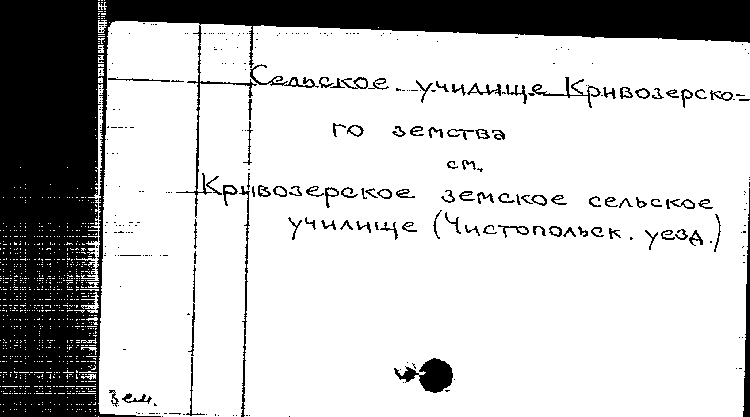 Сельское училище Кривозерско=
го земства
см.
Кривозерское земское сельское
училище (Чистопольск. уезд.)
Зем.